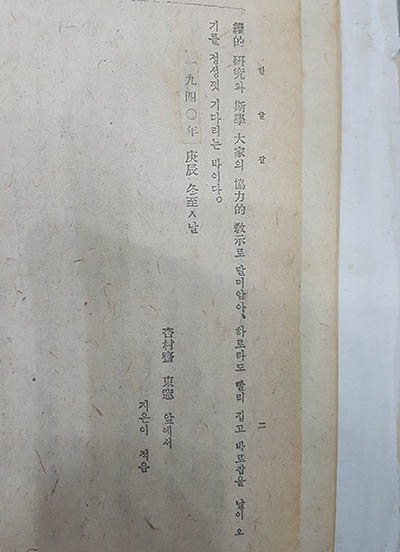 한글갈 二
繼的 硏究와 斯學 大家의 協力的 敎示로 말미암아, 하로라도 빨리 깁고 바로잡을 날이 오
기를 정성껏 기다리는 바이다。
一九四〇年 庚辰 冬至ㅅ날
杏村齋 東窓 앞에서
지은이 적음